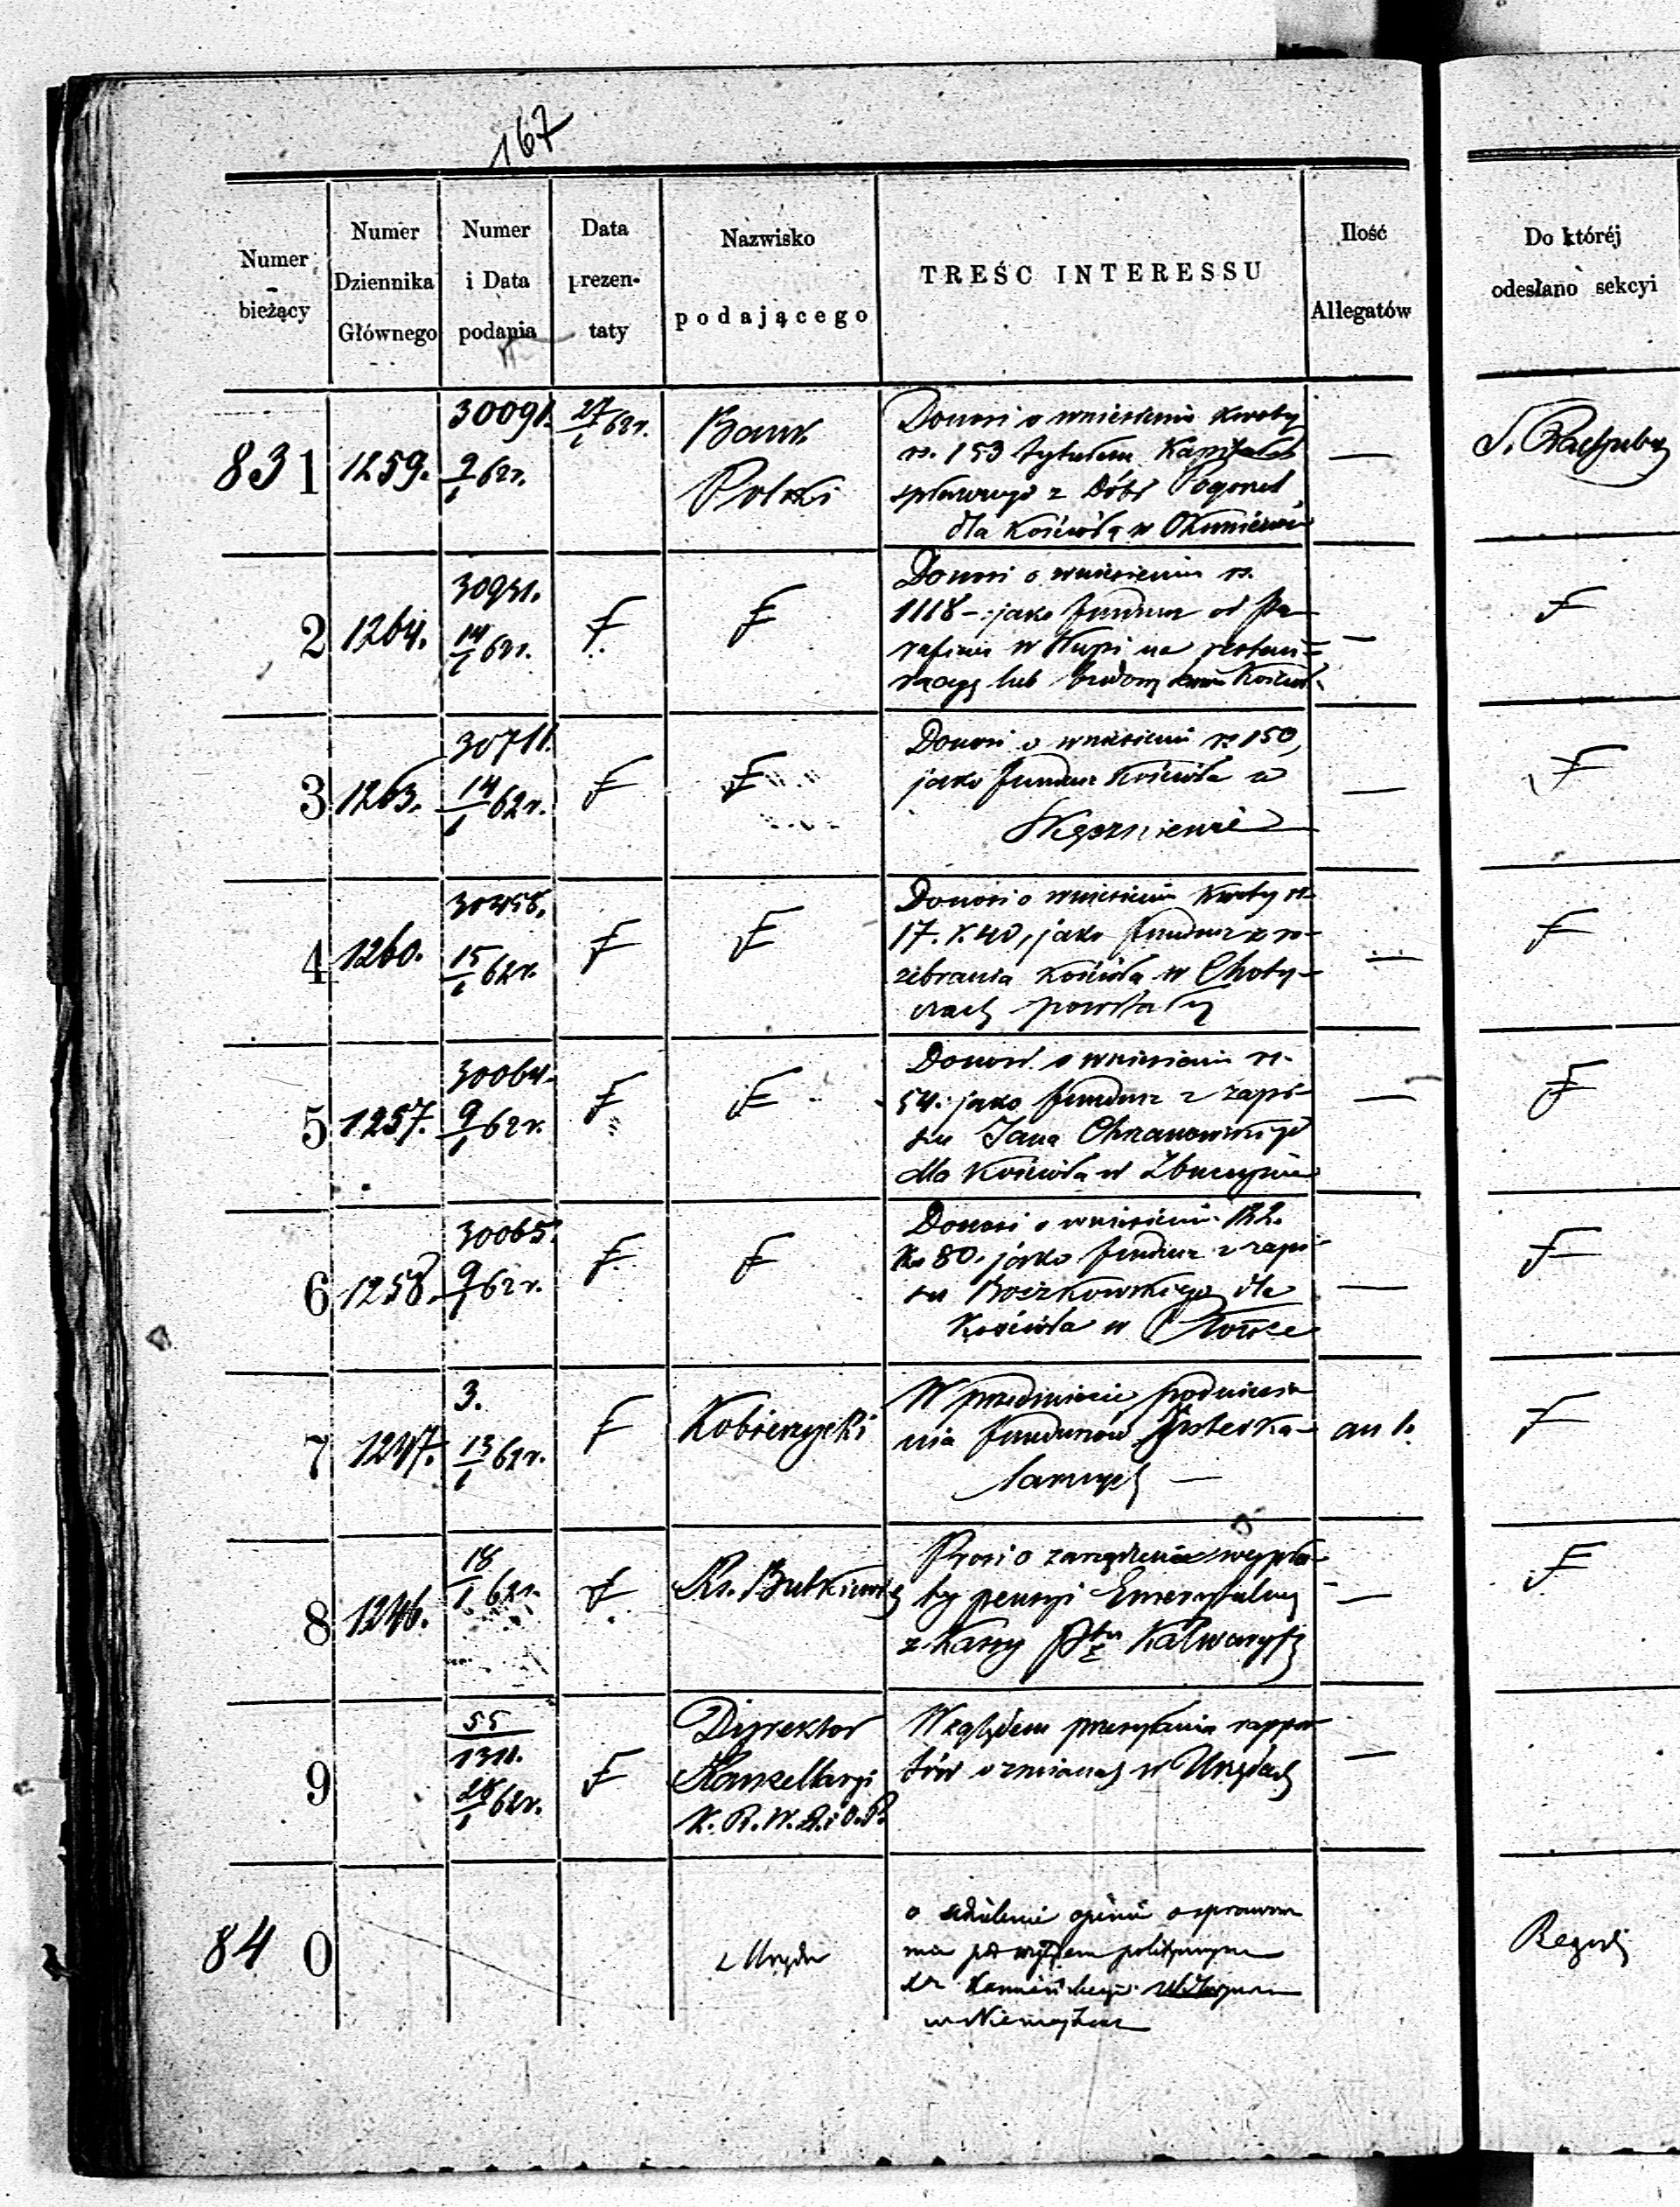 167
Numer bieżący
Numer Dziennika Głównego
Numer i Data podania
Data prezen- taty
Nazwisko podającego
TREŚĆ INTERESSU
Ilość Allegatów
Do któréj odesłano sekcyi
831 1259. 30091. 9/1 62r. 27/1 62r. Bank Polski
Donosi o wniesieniu kwoty
rs. 153 tytułem Kapitału
spławnego z dóbr Pogorzel
dla Kościoła w Okuniewie
—
S. Rachuby
2 1264. 30931. 14/1 62r. F F
Donosi o wniesieniu rs.
1118 - jako fundusz od Pa-
rafian w Kupi na restau-
racyę lub budowę Kościoła
—
F
3 1263. 30711. 14/1 62r. F F
Donosi o wniesieniu rs 150,
jako fundusz Kościoła w
—
F
4 1260. 30458. 15/1 62r. F F
Donosi o wniesieniu kwoty rs
17. k. 40, jako fundusz z ro-
zebrania Kościoła w Choty-
czach powstały
—
F
5 1257. 30064. 9/1 62r. F F
Donosi o wniesieniu rs.
54. jako fundusz z zapi-
su Jana Chrzanowskiego
dla Kościoła w Zbuczynie
—
F
6 1258. 30065. 9/1 62r. F F
Donosi o wniesieniu
Ko 80. jako fundusz z zapi-
su Boczkowskiego dla
Kościoła w
—
F
7 1247. 3. 13/1 62r. F Kobierzycki
W przedmiocie podniesie
nia funduszów Juterka-
larnych —
an 1.
F
8 1246. 18/1 62r. F Ks. Butkiewicz
Prosi o zarządzenie wypła-
ty pensyi Emerytalnej
z Kassy Ptu Kalwaryjs
—
F
9 55/1311. 28/1 62r. F
Dyrektor
Kancellaryi
K. R. W. R. i O. P.
Względem przesyłania rappor
tów o zmianach w Urzędach
—
840 z Urzędu
o udzielenie opinii o sprawowa
niu pod względem politycznym
w